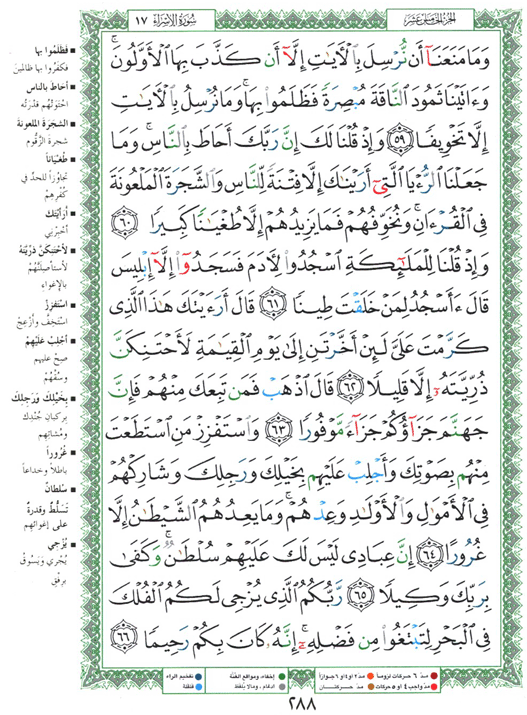 الجزء الخامس عشر
سورة الإسراء ١٧
وَمَا مَنَعَنَآ أَن نُّرْسِلَ بِٱلْءَايَٰتِ إِلَّآ أَن كَذَّبَ بِهَا ٱلْأَوَّلُونَۚ
وَءَاتَيْنَا ثَمُودَ ٱلنَّاقَةَ مُبْصِرَةً فَظَلَمُوا۟ بِهَاۚ وَمَا نُرْسِلُ بِٱلْءَايَٰتِ
إِلَّا تَخْوِيفًا ٥٩ وَإِذْ قُلْنَا لَكَ إِنَّ رَبَّكَ أَحَاطَ بِٱلنَّاسِۚ وَمَا
جَعَلْنَا ٱلرُّءْيَا ٱلَّتِىٓ أَرَيْنَٰكَ إِلَّا فِتْنَةً لِّلنَّاسِ وَٱلشَّجَرَةَ ٱلْمَلْعُونَةَ
فِى ٱلْقُرْءَانِۚ وَنُخَوِّفُهُمْ فَمَا يَزِيدُهُمْ إِلَّا طُغْيَٰنًا كَبِيرًا ٦٠
وَإِذْ قُلْنَا لِلْمَلَٰٓئِكَةِ ٱسْجُدُوا۟ لِءَادَمَ فَسَجَدُوٓا۟ إِلَّآ إِبْلِيسَ
قَالَ ءَأَسْجُدُ لِمَنْ خَلَقْتَ طِينًا ٦١ قَالَ أَرَءَيْتَكَ هَٰذَا ٱلَّذِى
كَرَّمْتَ عَلَىَّ لَئِنْ أَخَّرْتَنِ إِلَىٰ يَوْمِ ٱلْقِيَٰمَةِ لَأَحْتَنِكَنَّ
ذُرِّيَّتَهُۥٓ إِلَّا قَلِيلًا ٦٢ قَالَ ٱذْهَبْ فَمَن تَبِعَكَ مِنْهُمْ فَإِنَّ
جَهَنَّمَ جَزَآؤُكُمْ جَزَآءً مَّوْفُورًا ٦٣ وَٱسْتَفْزِزْ مَنِ ٱسْتَطَعْتَ
مِنْهُم بِصَوْتِكَ وَأَجْلِبْ عَلَيْهِم بِخَيْلِكَ وَرَجِلِكَ وَشَارِكْهُمْ
فِى ٱلْأَمْوَٰلِ وَٱلْأَوْلَٰدِ وَعِدْهُمْۚ وَمَا يَعِدُهُمُ ٱلشَّيْطَٰنُ إِلَّا
غُرُورًا ٦٤ إِنَّ عِبَادِى لَيْسَ لَكَ عَلَيْهِمْ سُلْطَٰنٌۚ وَكَفَىٰ
بِرَبِّكَ وَكِيلًا ٦٥ رَّبُّكُمُ ٱلَّذِى يُزْجِى لَكُمُ ٱلْفُلْكَ
فِى ٱلْبَحْرِ لِتَبْتَغُوا۟ مِن فَضْلِهِۦٓۚ إِنَّهُۥ كَانَ بِكُمْ رَحِيمًا ٦٦
فَظَلَمُوا بها
فكفروا بها ظالمين
أحاط بالناس
احتوتهم قدرته
الشجرة الملعونة
شجرة الزقوم
طغيانا
تجاوزا للحد في
كفرهم
أرأيتك
أخبرني
لأحتنكن ذريته
لأستأصلنهم
بالإغواء
استفزز
استخف وأزعج
أجلب عليهم
صح عليهم
وسقهم
بخيلك ورجلك
بركبان جندك
ومشاتهم
غرورا
باطلا وخداعا
سلطان
تسلط وقدرة
على إغوائهم
يزجي
يجري ويسوق
برفق
مد ٦ حركات لزوما
مد ٢ أو ٤ أو ٦ جوازا
إخفاء، ومواقع الغنة
تفخيم الراء
مد واجب ٤ أو ٥ حركات
مد حركتان
إدغام، وما لا يلفظ
قلقلة
٢٨٨